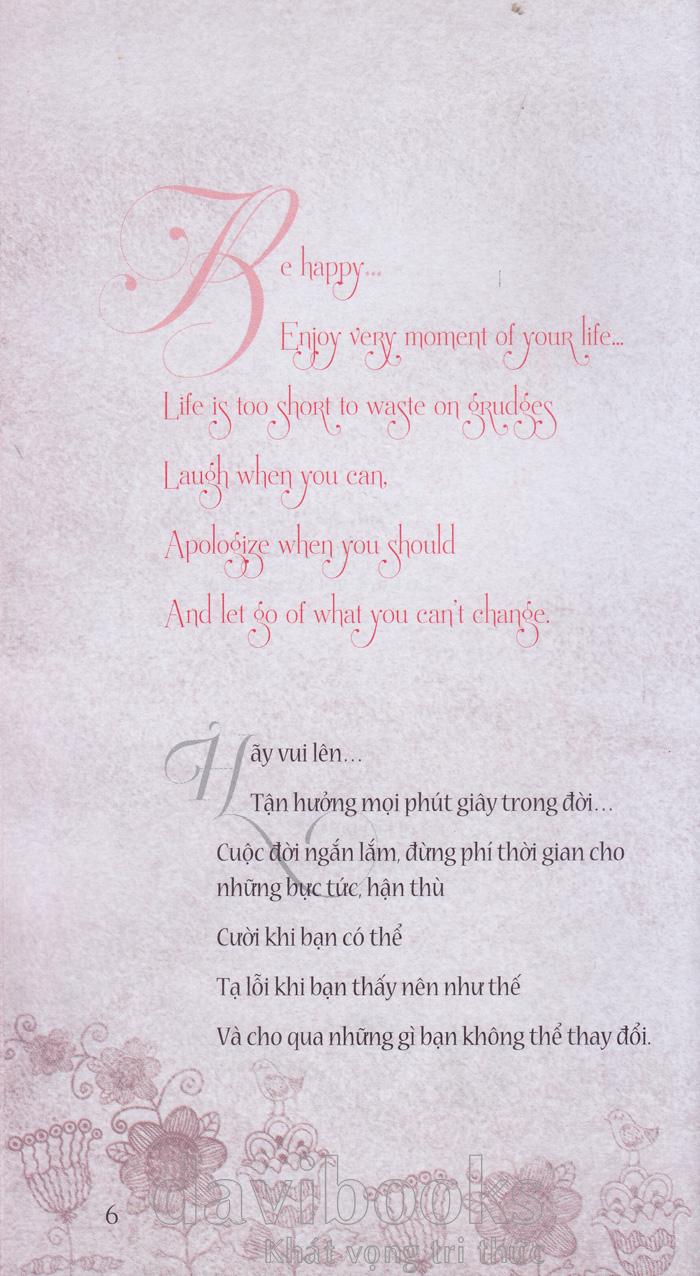 Be happy...
Enjoy very moment of your life...
Life is too short to waste on grudges
Laugh when you can,
Apologize when you should
And let go of what you can't change.
Hãy vui lên...
Tận hưởng mọi phút giây trong đời...
Cuộc đời ngắn lắm, đừng phí thời gian cho
những bực tức, hận thù
Cười khi bạn có thể
Tạ lỗi khi bạn thấy nên như thế
Và cho qua những gì bạn không thể thay đổi.
davibooks
6
Khát vọng tri thức